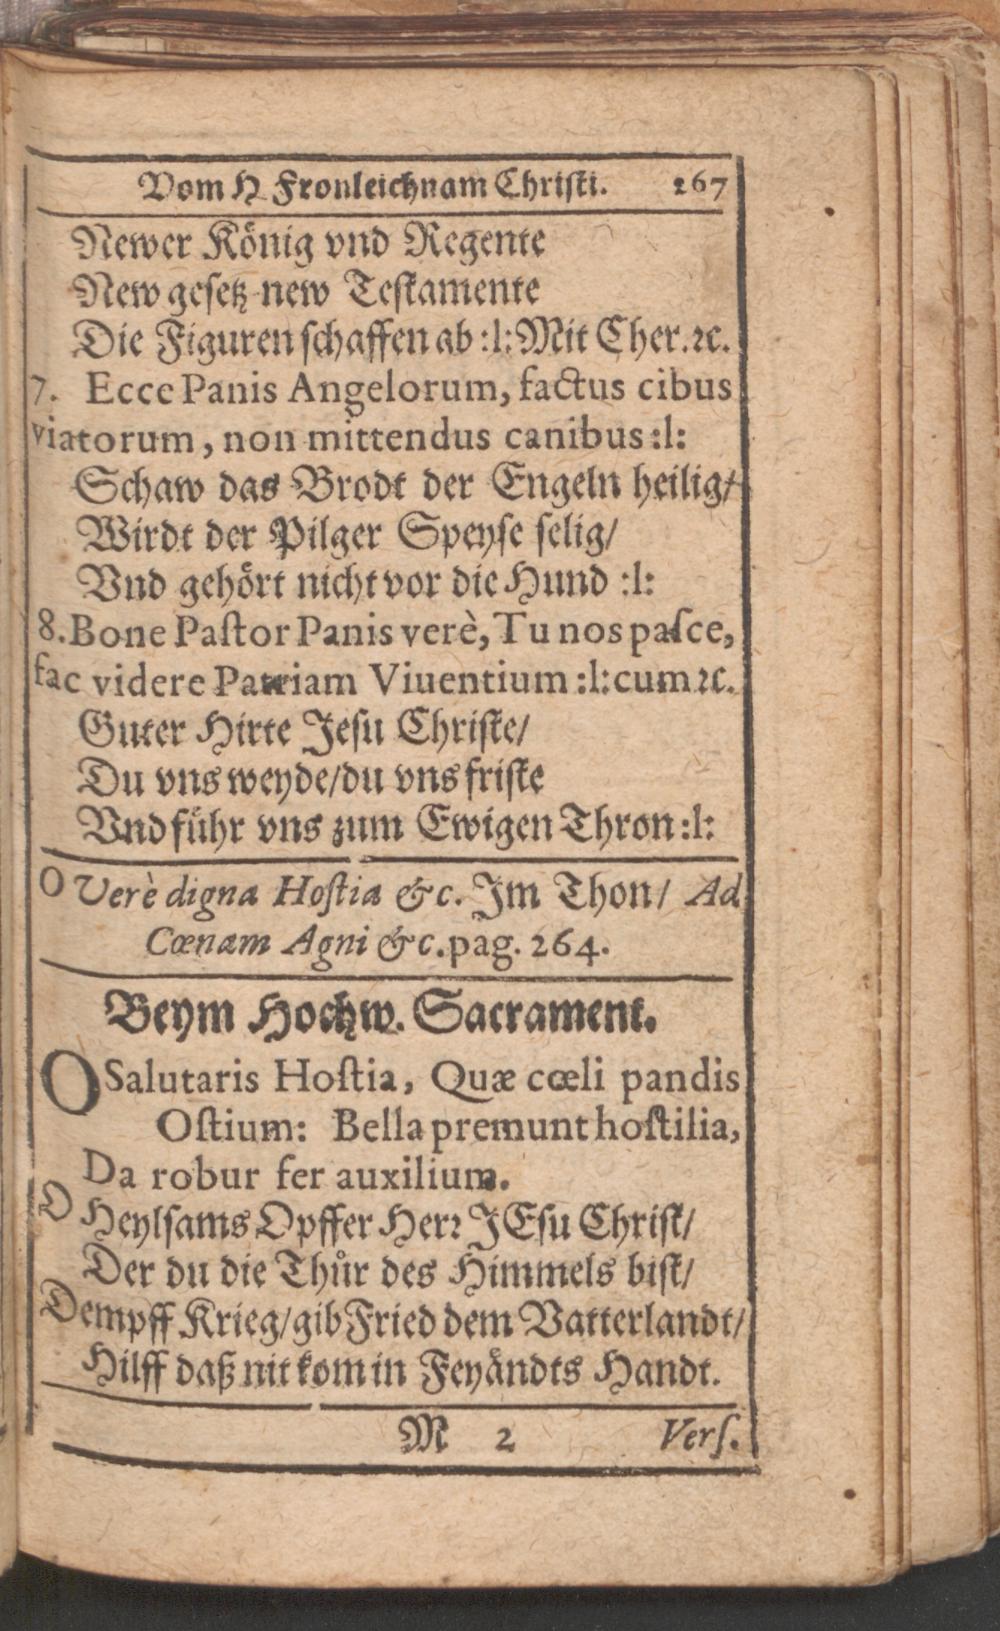 Vom H Fronleichnam Christi. 267
Newer König vnd Regente
New gesetz new Testamente
Die Figuren schaffen ab :l: Mit Cher. ꝛc.
7. Ecce Panis Angelorum, factus cibus
viatorum, non mittendus canibus :l:
Schaw das Brodt der Engeln heilig/
Wirdt der Pilger Speyse selig/
Vnd gehört nicht vor die Hund :l:
8. Bone Pastor Panis verè, Tu nos pasce,
fac videre Patriam Viuentium :l: cum ꝛc.
Guter Hirte Jesu Christe/
Du vns weyde/du vns friste
Vnd führ vns zum Ewigen Thron :l:
O Verè digna Hostia &c. Jm Thon/ Ad
Cœnam Agni &c. pag. 264.
Beym Hochw. Sacrament.
O Salutaris Hostia, Quæ cœli pandis
Ostium: Bella premunt hostilia,
Da robur fer auxilium.
O Heylsams Opffer Herꝛ JEsu Christ/
Der du die Thür des Himmels bist/
Dempff Krieg/gib Fried dem Vatterlandt/
Hilff daß nit kom in Feyändts Handt.
M 2 Vers.